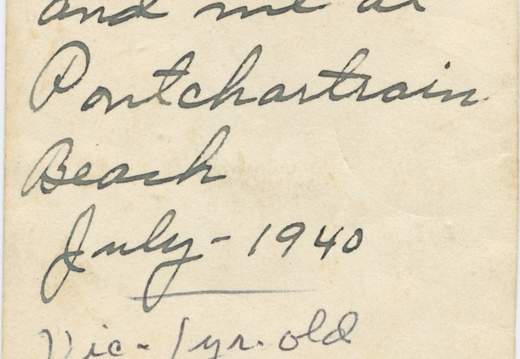 and me at
Pontchartrain
Beach
July - 1940
Vic - 1 yr. old